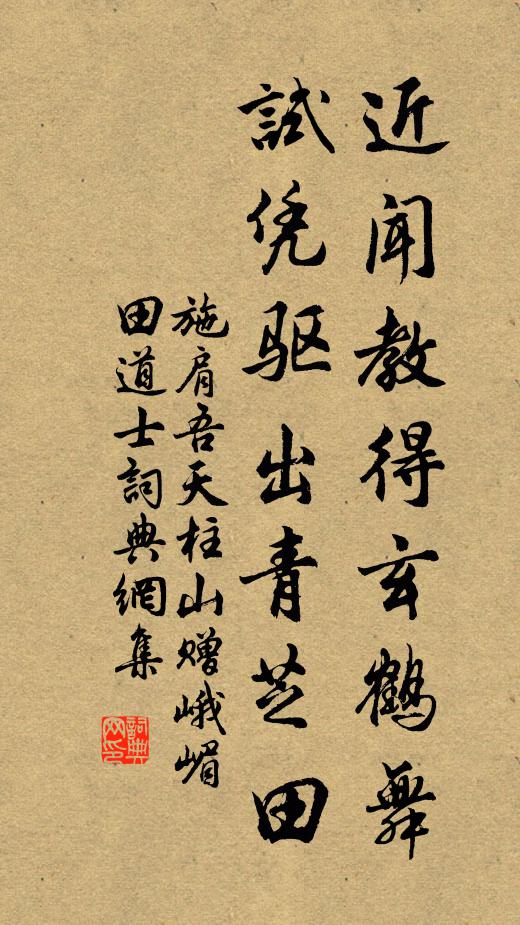 近闻教得玄鹤舞
試凭驱出青芝田
施肩吾天柱山赠峨嵋
田道士詞典網集
詞典
网印